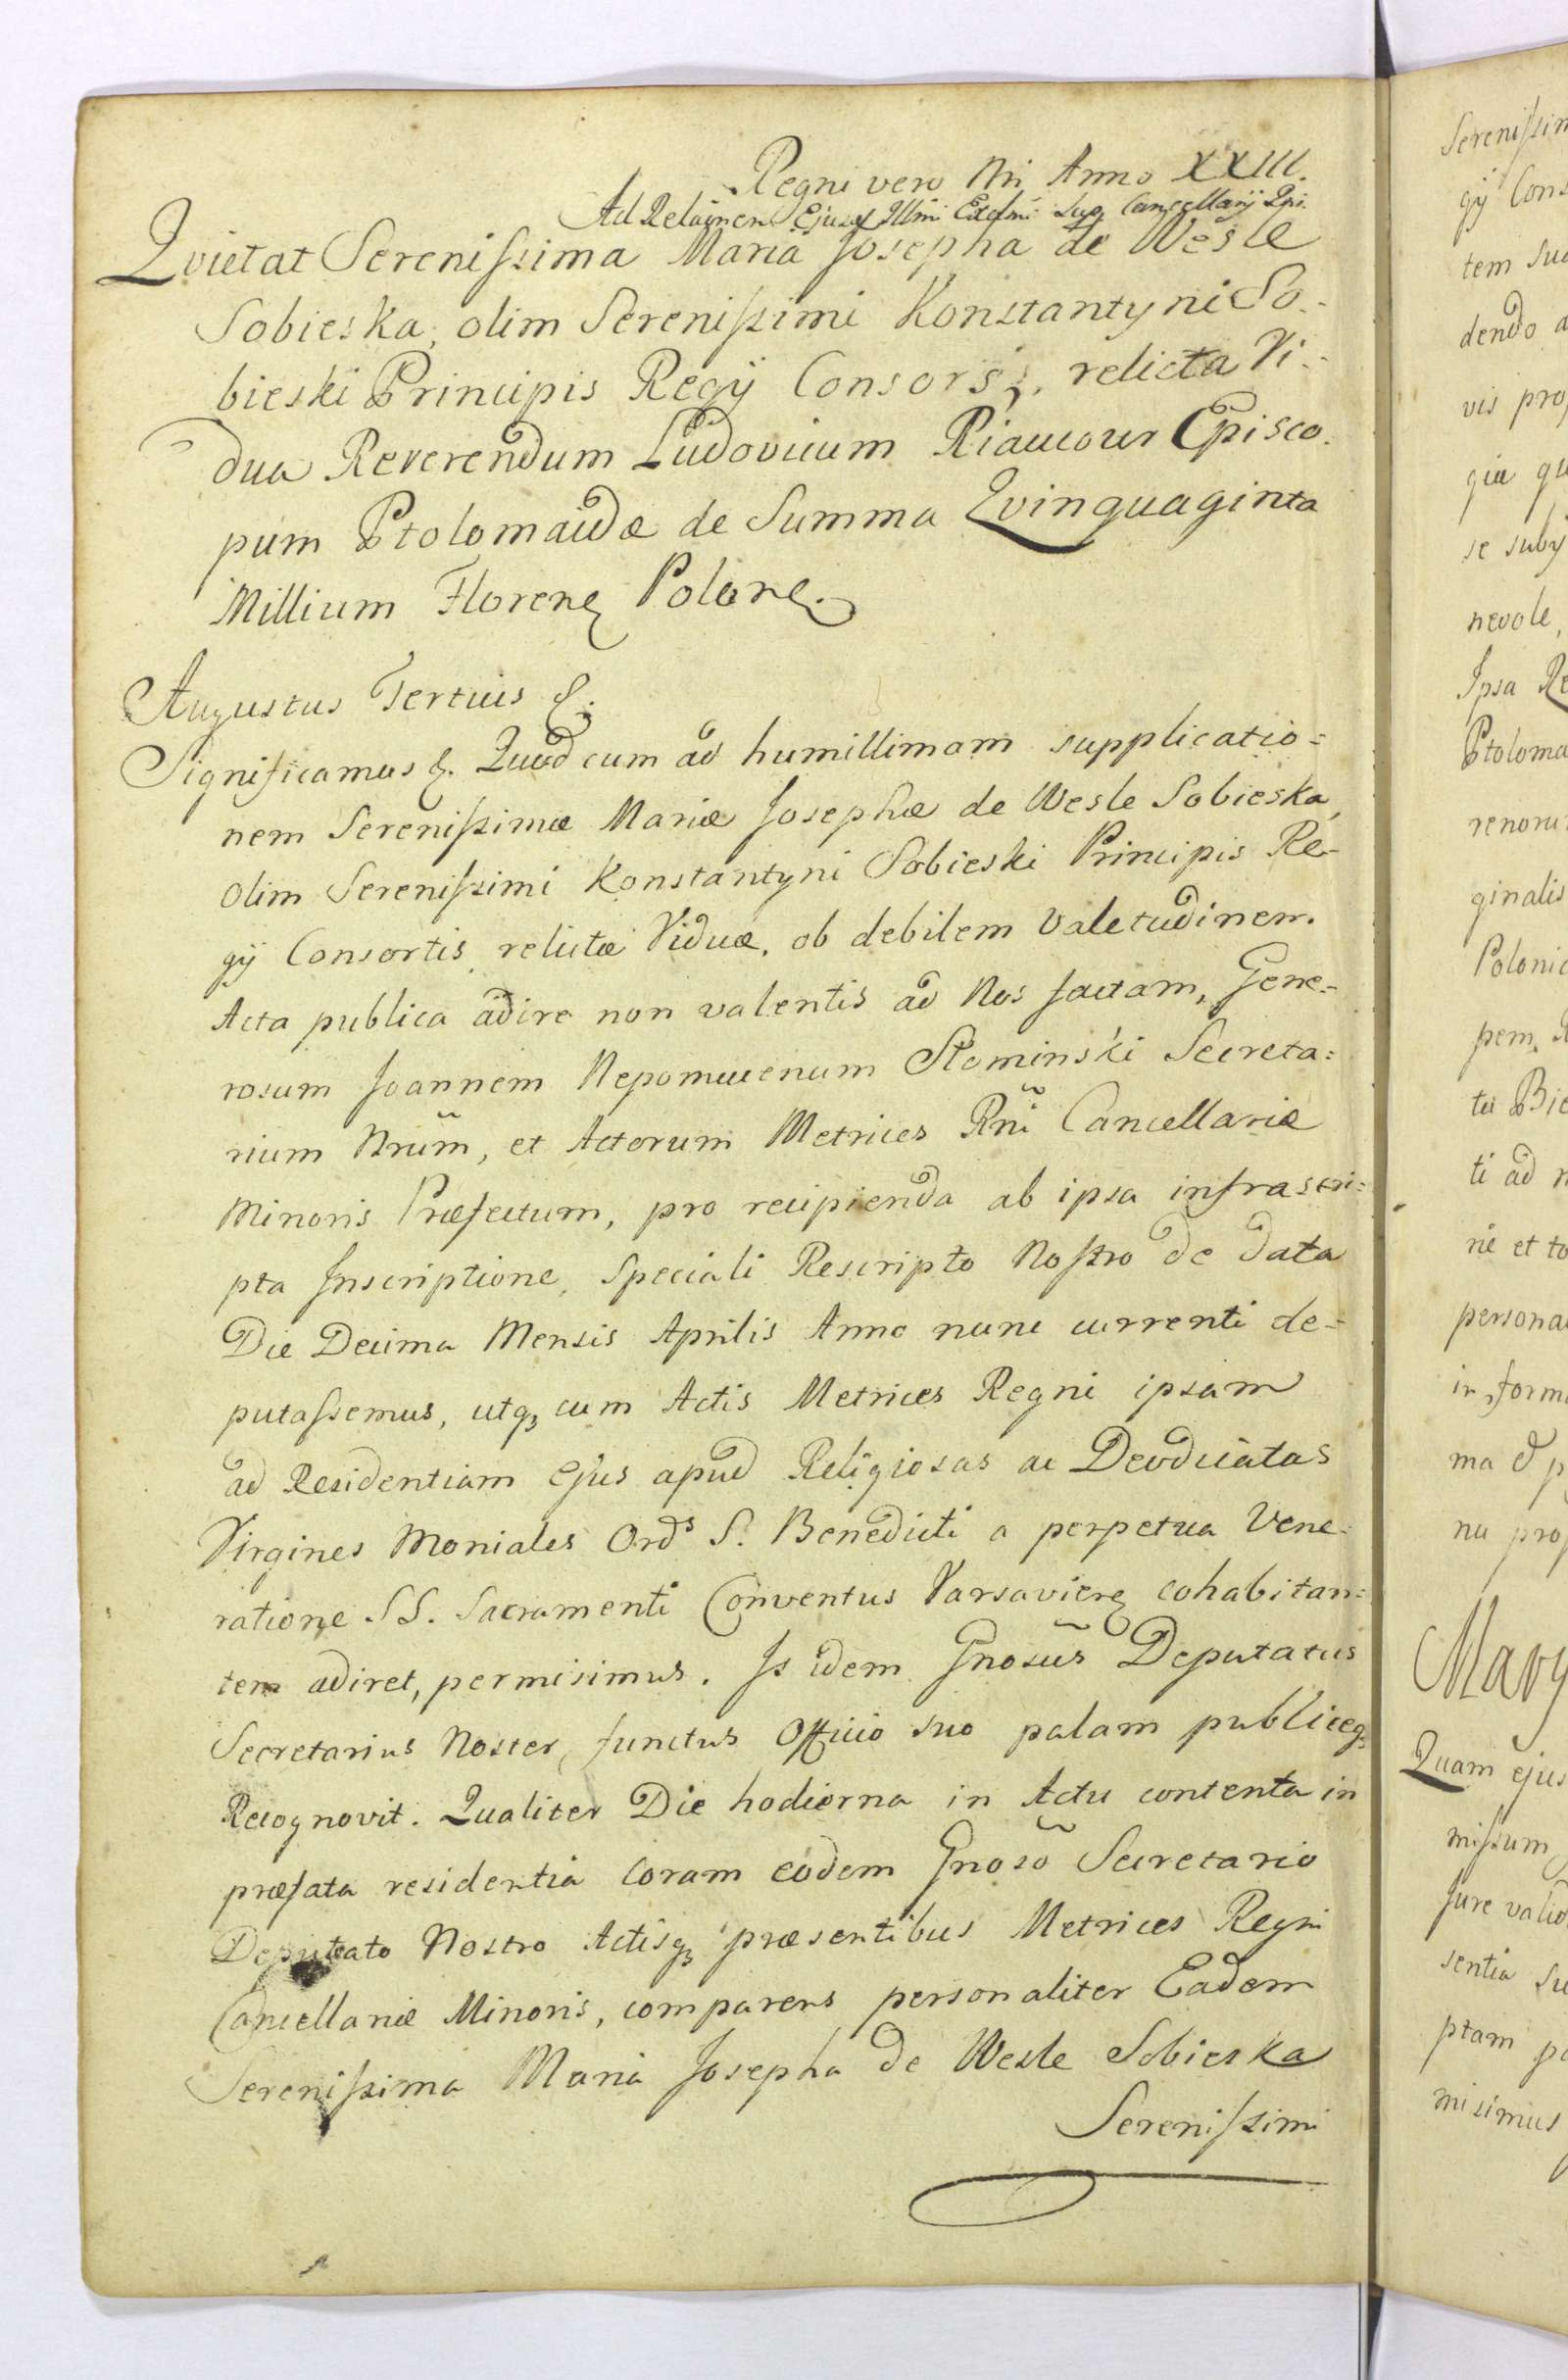 Regni vero Nri Anno XXIII.
Ad Relaõnem Ejusd Illmi Excelmi Sup Cancellarij Rgni.
Qvietat Serenissima Maria Josepha de Wesle
Sobieska, olim Serenissimi Konstantyni So-
bieski Principis Regij Consors, relicta Vi-
dua Reverendum Ludovicum Riaucour Episco-
pum Ptolomaidæ de Summa Qvinquaginta
Millium Florenq Polonq.
Augustus Tertius &.
Significamus &. Quod cum ad humillimam supplicatio=
nem Serenissimæ Mariæ Josephæ de Wesle Sobieska,
olim Serenissimi Konstantyni Sobieski Principis Re-
gij Consortis, relictæ Viduæ, ob debilem valetudinem
Acta publica adire non valentis ad Nos factam, Gene=
rosum Joannem Nepomucenum Słominski Secreta=
rium Nrum̃, et Actorum Metrices Rñi Cancellariæ
Minoris Præfectum, pro recipienda ab ipsa infrascri=
pta Inscriptione, speciali Rescripto Nostro de data
Die Decima Mensis Aprilis Anno nunc currenti de=
putassemus, utq3 cum Actis Metrices Regni ipsam
ad Residentiam Ejus apud Religiosas ac Deodicatas
Virgines Moniales Ords S. Benedicti a perpetua Vene-
ratione SS. Sacramenti Conventus Varsavienq cohabitan=
tem adiret, permisimus. Is idem Gnosus̃ Deputatus
Secretarius Noster, functus Officio suo palam publiceq3
Recognovit. Qualiter Die hodierna in Actu contenta in
præfata residentia coram eodem Gnosõ Secretario
Deputato Nostro Actisq3 præsentibus Metrices Regni
Cancellariæ Minoris, comparens personaliter Eadem
Serenissima Maria Josepha de Wesle Sobieska
Serenissimi